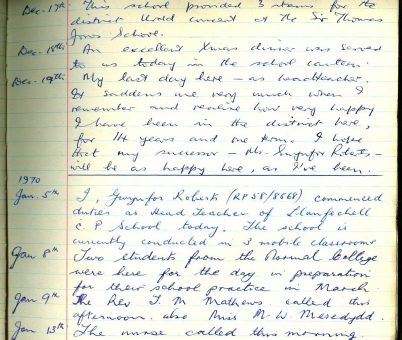 Dec. 17th This school provided 3 items for the
district Urdd concert at the Sir Thomas
Jones School.
Dec. 18th An excellent Xmas dinner was served
to us today in the school canteen.
Dec. 19th My last day here - as headteacher.
It saddens me very much when I
remember and realise how very happy
I have been in the district here,
for 14 years and one term. I hope
that my successor - Mr. Gwynfor Roberts -
will be as happy here, as I've been.
1970
Jan. 5th I, Gwynfor Roberts (RP58/8668) commenced
duties as Head Teacher of Llanfechell
C.P. School today. The school is
currently conducted in 3 mobile classrooms
Jan 8th Two students from the Normal College
were here for the day in preparation
for their school practice in March.
Jan 9th The Rev T. M Mathews called this
afternoon. also Miss M. W. Meredydd.
Jan 13th The nurse called this morning.